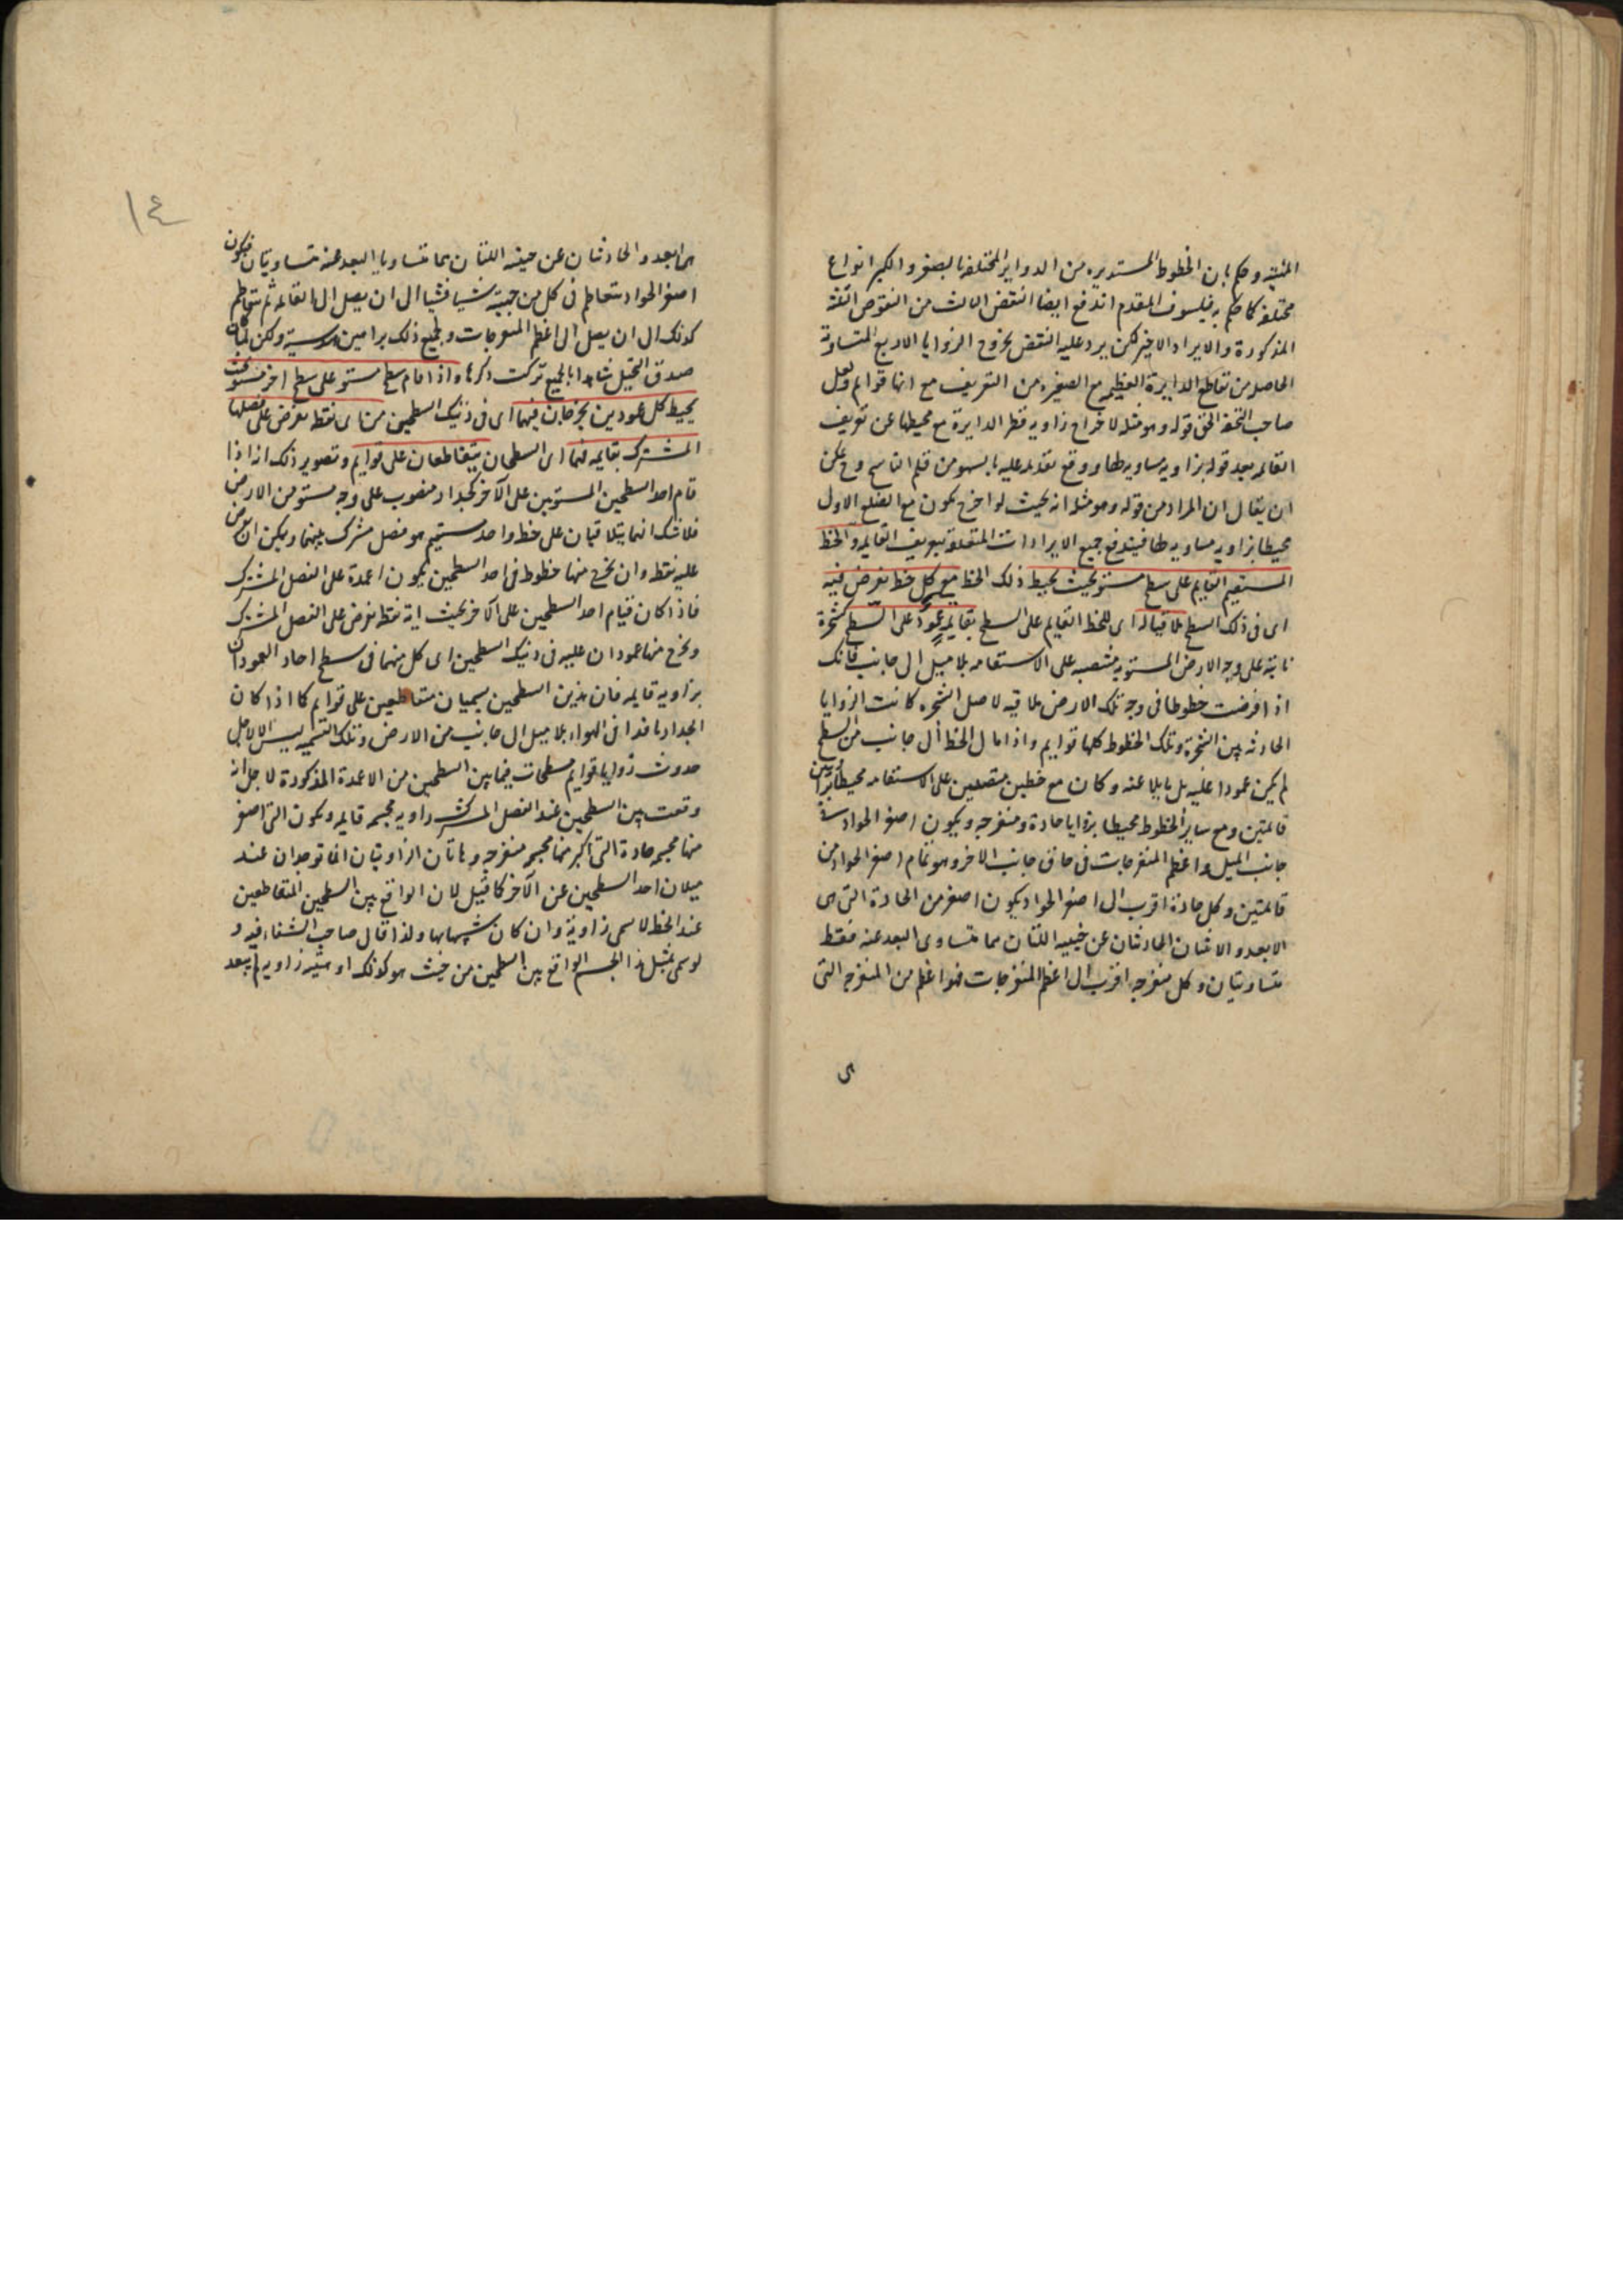 المثنية وحكم بان الخطوط المستديرة من الدواير المختلفة بالصغر والكبر انواع
مختلفة كما حكم به فيلسوف المقدم اندفع ايضا النقض الثالث من النقوض الثلثة
المذكورة والايراد الاخير لكن يرد عليه النقض بخروج الزوايا الاربع المتساوية
الحاصل من تقاطع الدايرة العظيمة مع الصغيرة من التعريف مع انها قوايم ولعل
صاحب التحفة الحق قوله وهو مثله لاخراج زاوية قطر الدايرة مع محيطها عن تعريف
القايمة بعد قوله بزاوية مساوية لها ووقع تقديمه عليه بالسهو من قلم الناسخ وح يمكن
ان يقال ان المراد من قوله وهو مثله انه بحيث لو اخرج يكون مع الضلع الاول
محيطا بزاوية مساوية لها فيندفع جميع الايرادات المتعلقة بتعريف القايمة والخط
المستقيم القايم على سطح مستو بحيث يحيط ذلك الخط مع كل خط يفرض فيه
اى فى ذلك السطح ملاقيا له اى للخط القايم على السطح بقايمة عمود على السطح كشجرة
نابتة على وجه الارض المستوية منتصبة على الاستقامة بلا ميل الى جانب فانك
اذا فرضت خطوطا فى وجه تلك الارض ملاقية لاصل الشجرة كانت الزوايا
الحادثة بين الشجرة وتلك الخطوط كلها قوايم واذا مال الخط الى جانب من السطح
لم يكن عمودا عليه بل مايلا عنه وكان مع خطين متصلين على الاستقامة محيطا بزاويتين
قائمتين ومع ساير الخطوط محيطا بزوايا حادة ومنفرجة ويكون اصغر الحواد فى
جانب الميل واعظم المنفرجات فى حاق جانب الاخر وهو تمام اصغر الحواد من
قائمتين وكل حادة اقرب الى اصغر الحواد يكون اصغر من الحادة التى هى
الابعد والاثنتان الحادثتان عن جنبيه اللتان مما تتساوى البعد عنه فقط
متساويتان وكل منفرجة اقرب الى اعظم المنفرجات فهو اعظم من المنفرجة التى
هى
١٤
هى ابعد والحادثتان عن جنبيه اللتان مما تتساويا البعد عنه متساويتان فيكون
اصغر الحواد يتعاظم فى كل من جنبيه شيا فشيا الى ان يصل الى القائمة ثم يتعاظم
كذلك الى ان يصل الى اعظم المنفرجات ولجميع ذلك براهين هندسية ولكن لما كان
صدق التخيل شاهدا بالجميع تركت ذكرها واذا قام سطح مستو على سطح اخر مستو بحيث
يحيط كل عمودين يخرجان فيهما اى فى ذينك السطحين من اى نقطة يفرض على فصلها
المشترك بقايمة فهما اى السطحان يتقاطعان على قوايم وتصوير ذلك انه اذا
قام احد السطحين المستويين على الآخر كجدار منصوب على وجه مستو من الارض
فلا شك انهما يتلاقيان على خط واحد مستقيم هو فصل مشترك بينهما ويمكن ان يفرض
عليه نقطة وان يخرج منها خطوط فى احد السطحين يكون اعمدة على الفصل المشترك
فاذا كان قيام احد السطحين على الآخر بحيث اية نقطة يفرض على الفصل المشترك
ويخرج منها عمودان عليه فى ذينك السطحين اى كل منهما فى سطح احاد العمودان
بزاوية قايمة فان هذين السطحين يسميان متقاطعين على قوايم كما اذا كان
الجدار نافذا فى الهواء بلا ميل الى جانب من الارض وتلك التسمية ليس الا لاجل
حدوث زوايا قوايم مسطحات فيما بين السطحين من الاعمدة المذكورة لا لاجل انه
وقعت بين السطحين عند الفصل المشترك زاوية مجسمة قايمة ويكون التى اصغر
منها مجسمة حادة التى اكبر منها مجسمة منفرجة وهاتان الزاويتان انما توجدان عند
ميلان احد السطحين عن الآخر كما قيل لان الواقع بين السطحين المتقاطعين
عند الخط لا يسمى زاوية وان كان شبيها بها ولذا قال صاحب الشفاء فيه و
لو سمى بمثل هذا الجسم الواقع بين السطحين من حيث هو كذلك او هيئته زاوية لم يبعد